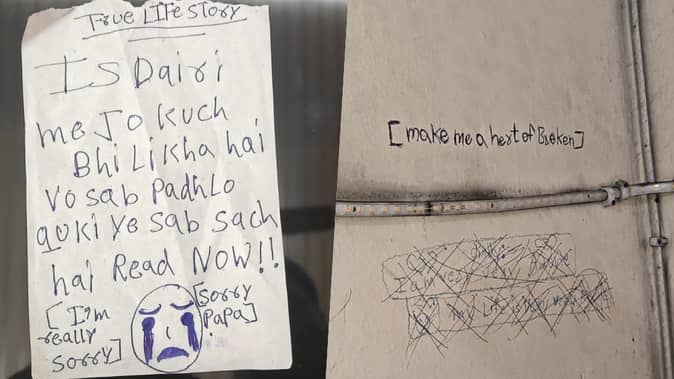 True LIFe Story
IS Dairi
me Jo Kuch
Bhi Likha hai
vo sab Padhlo
quki ye sab sach
hai Read NOW!!
[I'm
really
sorry]
[sorry
Papa]
[make me a hert of Broken]